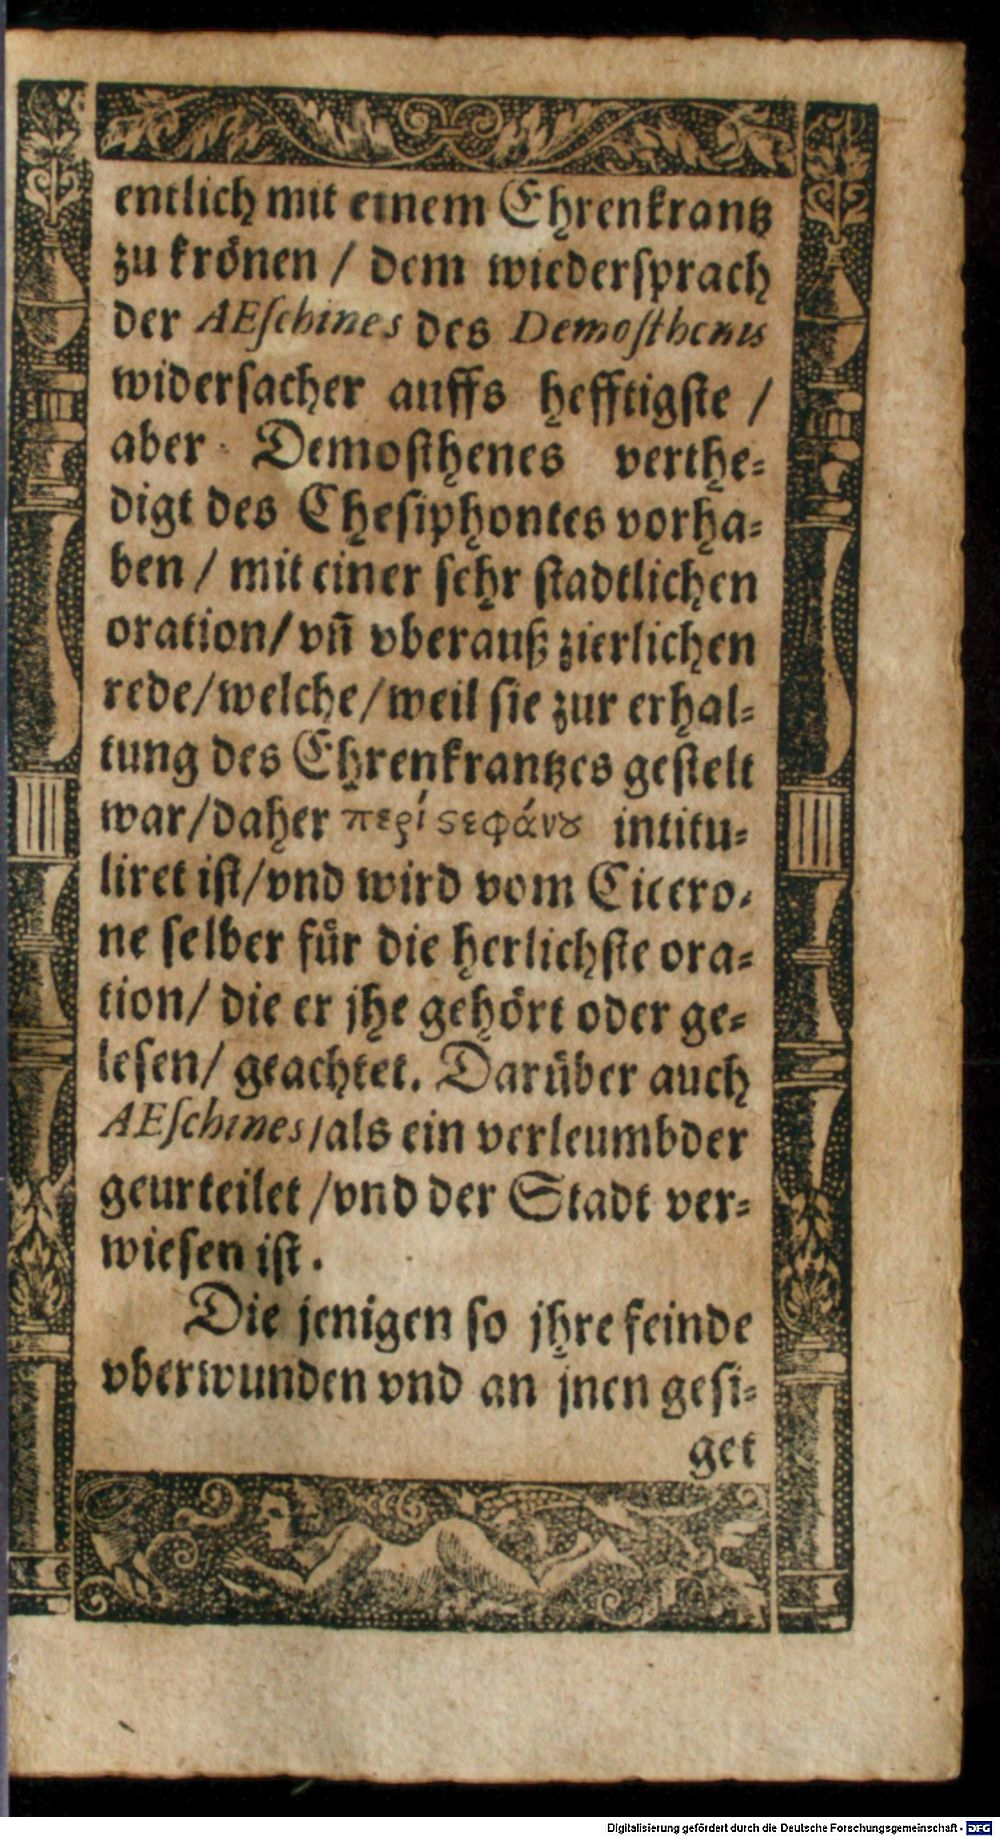 entlich mit einem Ehrenkrantz
zu krönen / dem wiedersprach
der AEschines des Demosthenis
widersacher auffs hefftigste /
aber Demosthenes verthe-
digt des Chesiphontes vorha-
ben / mit einer sehr stadtlichen
oration/ vn̄ vberauß zierlichen
rede/welche/weil sie zur erhal-
tung des Ehrenkrantzes gestelt
war/daher περί ϛεφάνȣ intitu-
liret ist/vnd wird vom Cicero-
ne selber für die herlichste ora-
tion/ die er jhe gehört oder ge-
lesen/ geachtet. Darüber auch
AEschines/als ein verleumbder
geurteilet /vnd der Stadt ver-
wiesen ist.
Die jenigen so jhre feinde
vberwunden vnd an jnen gesi-
get
Digitalisierung gefördert durch die Deutsche Forschungsgemeinschaft - DFG